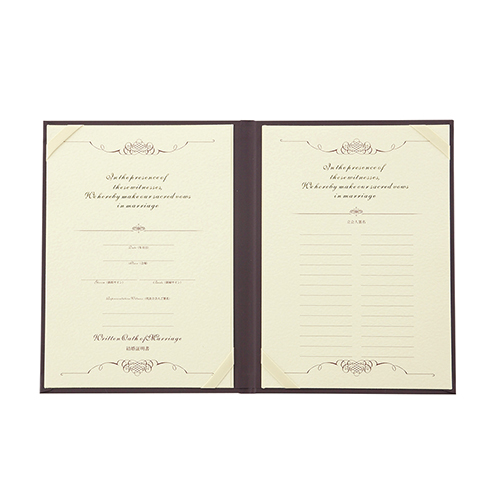 In the presence of
these witnesses,
We hereby make our sacred vows
in marriage
Written Oath of Marriage
結婚証明書
In the presence of
these witnesses,
We hereby make our sacred vows
in marriage